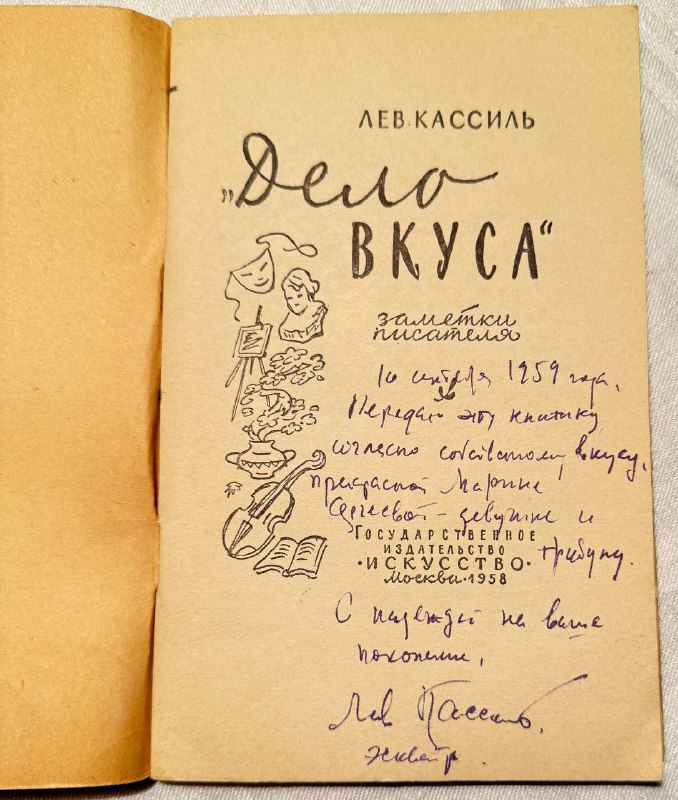 ЛЕВ КАССИЛЬ
„Дело
ВКУСА“
заметки
писателя
10 октября 1959 года.
Передаю эту книжку,
согласно собственному вкусу,
прекрасной Марине
Сергеевой – девушке и
трибуну.
ГОСУДАРСТВЕННОЕ
ИЗДАТЕЛЬСТВО
·ИСКУССТВО·
МОСКВА·1958
С надеждой на ваше
поколение,
Лев Кассиль.